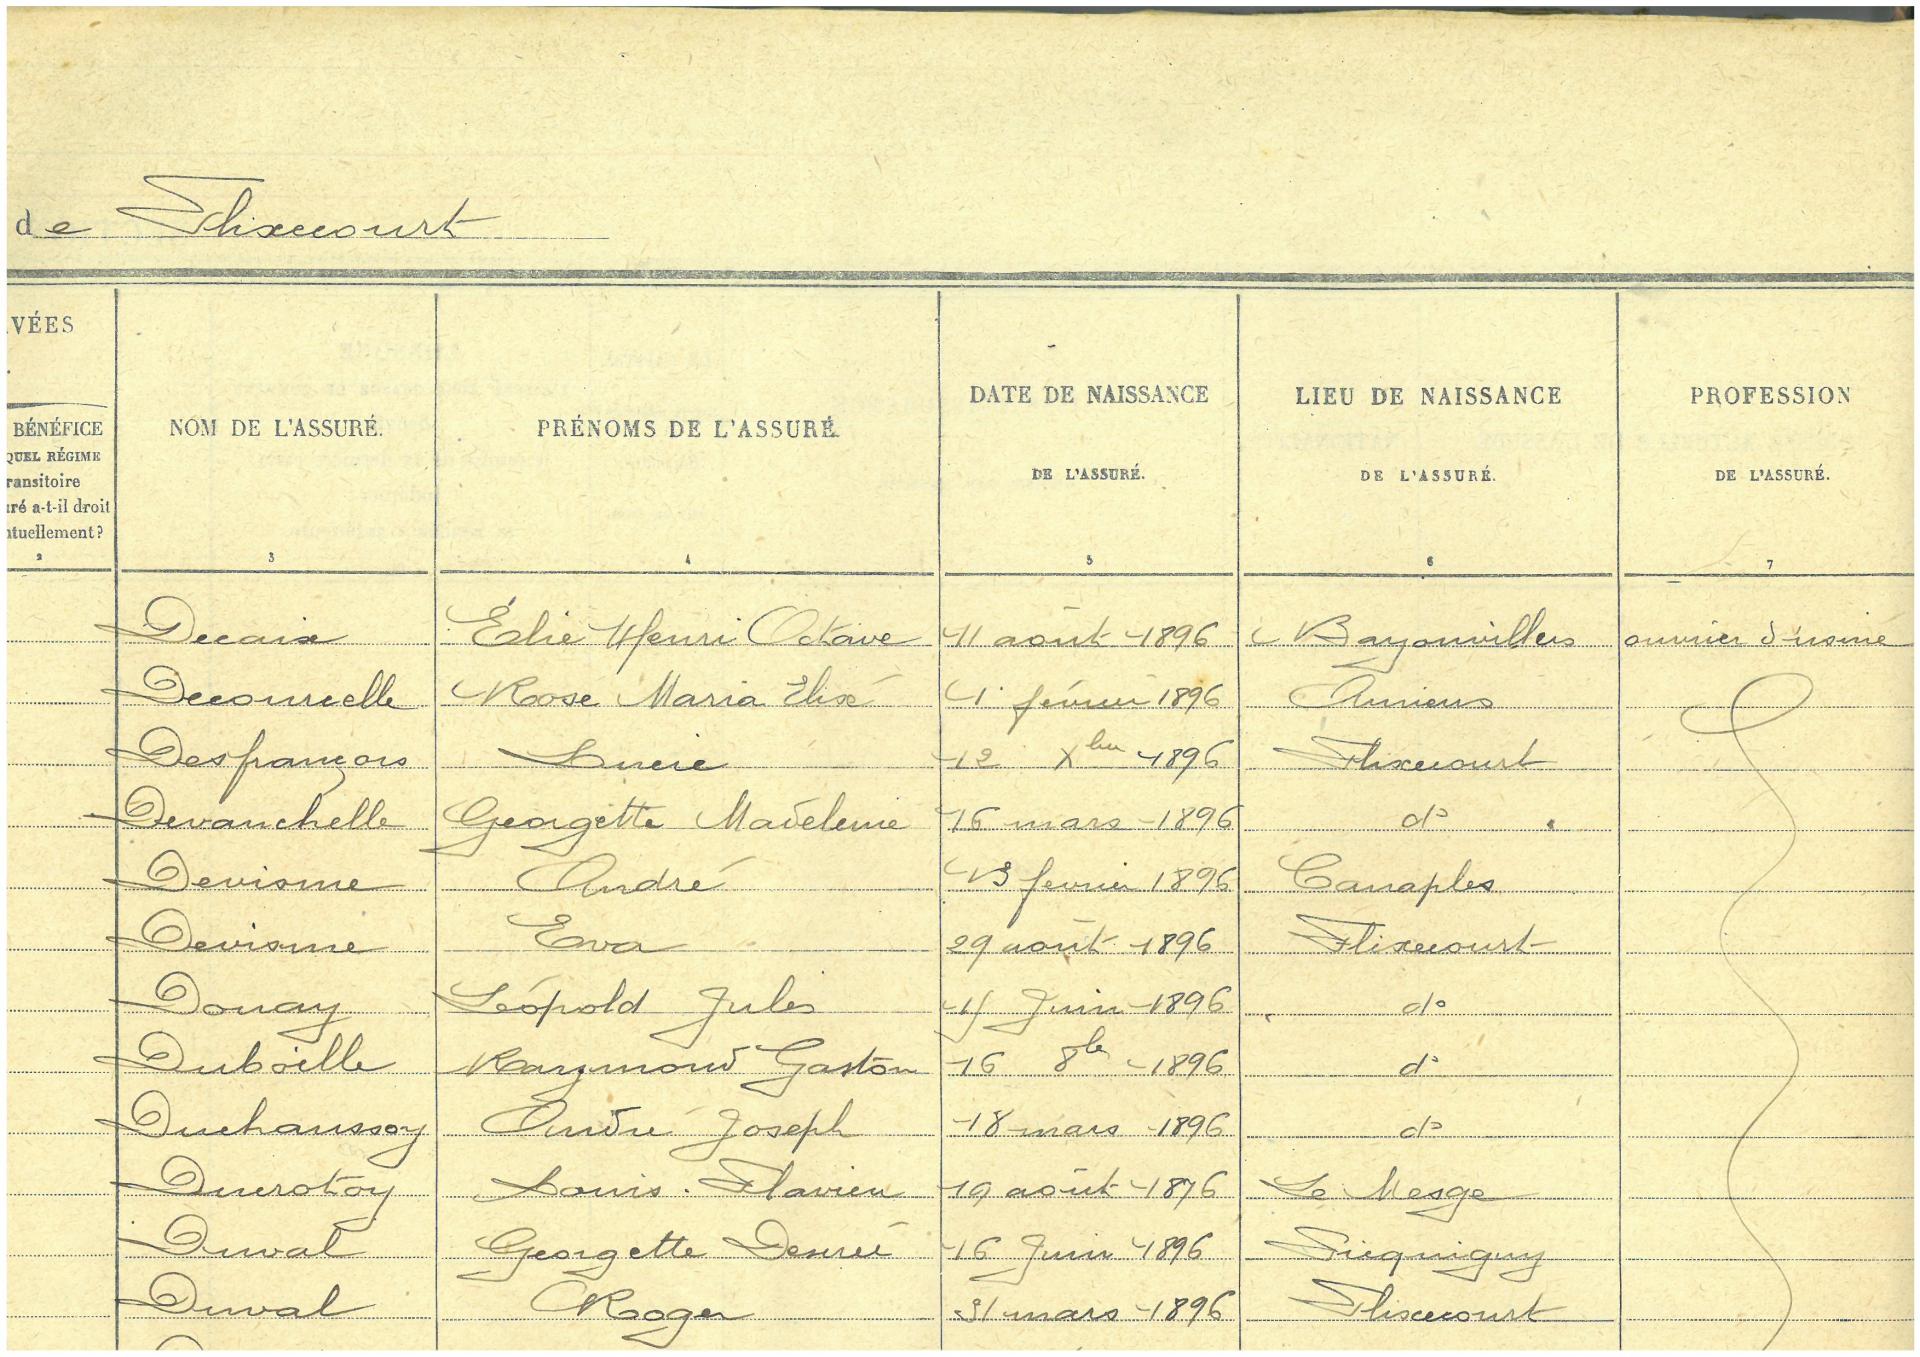 de Flixecourt
VÉES
BÉNÉFICE
QUEL RÉGIME
ransitoire
uré a-t-il droit
ntuellement?
2
NOM DE L'ASSURÉ.
3
PRÉNOMS DE L'ASSURÉ.
4
DATE DE NAISSANCE
DE L'ASSURÉ.
5
LIEU DE NAISSANCE
DE L'ASSURÉ.
6
PROFESSION
DE L'ASSURÉ.
7
Decaix Élie Henri Octave 11 août 1896 Bayonvillers ouvrier d'usine
Decourcelle Rose Maria Elisé 1 février 1896 Amiens
Desfrançois Lucie 12 Xbre 1896 Flixecourt
Devanchelle Georgette Madeleine 16 mars 1896 do
Devisme André 13 fevrier 1896 Canaples
Devisme Eva 29 août 1896 Flixecourt
Douay Léopold Jules Juin 1896 do
Duboille Raymond Gaston 16 8bre 1896 do
Duchaussoy André Joseph 18 mars 1896 do
Ducrotoy Louis Flavien 19 août 1896 Le Mesge
Duval Georgette Desiré 16 Juin 1896 Picquigny
Duval Roger 31 mars 1896 Flixecourt